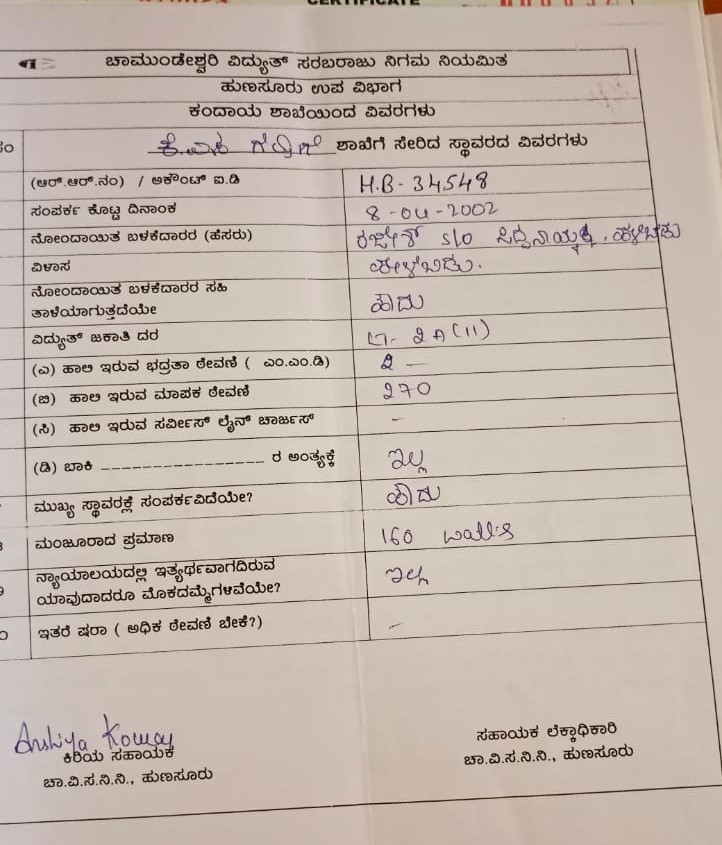 CERTIFICATE
ಚಾಮುಂಡೇಶ್ವರಿ ವಿದ್ಯುತ್ ಸರಬರಾಜು ನಿಗಮ ನಿಯಮಿತ
ಹುಣಸೂರು ಉಪ ವಿಭಾಗ
ಕಂದಾಯ ಶಾಖೆಯಿಂದ ವಿವರಗಳು
ಶಾಖೆಗೆ ಸೇರಿದ ಸ್ಥಾವರದ ವಿವರಗಳು
(ಆರ್.ಆರ್.ನಂ) / ಅಕೌಂಟ್ ಐ.ಡಿ H.B- 34548
ಸಂಪರ್ಕ ಕೊಟ್ಟ ದಿನಾಂಕ 8-04-2002
ನೋಂದಾಯಿತ ಬಳಕೆದಾರರ (ಹೆಸರು) S/o
ವಿಳಾಸ
ನೋಂದಾಯಿತ ಬಳಕೆದಾರರ ಸಹಿ
ತಾಳೆಯಾಗುತ್ತದೆಯೇ ಹೌದು
ವಿದ್ಯುತ್ ಜಕಾತಿ ದರ 2A(11)
(ಎ) ಹಾಲಿ ಇರುವ ಭದ್ರತಾ ಠೇವಣಿ ( ಎಂ.ಎಂ.ಡಿ) 2 -
(ಬಿ) ಹಾಲಿ ಇರುವ ಮಾಪಕ ಠೇವಣಿ 270
(ಸಿ) ಹಾಲಿ ಇರುವ ಸರ್ವೀಸ್ ಲೈನ್ ಚಾರ್ಜಸ್ -
(ಡಿ) ಬಾಕಿ ________________ ರ ಅಂತ್ಯಕ್ಕೆ ಇಲ್ಲ
ಮುಖ್ಯ ಸ್ಥಾವರಕ್ಕೆ ಸಂಪರ್ಕವಿದೆಯೇ? ಹೌದು
ಮಂಜೂರಾದ ಪ್ರಮಾಣ 160 watts
ನ್ಯಾಯಾಲಯದಲ್ಲಿ ಇತ್ಯರ್ಥವಾಗದಿರುವ
ಯಾವುದಾದರೂ ಮೊಕದಮ್ಮೆಗಳಿವೆಯೇ? ಇಲ್ಲ
ಇತರೆ ಷರಾ ( ಅಧಿಕ ಠೇವಣಿ ಬೇಕೆ?) -
ಕಿರಿಯ ಸಹಾಯಕ
ಚಾ.ವಿ.ಸ.ನಿ.ನಿ., ಹುಣಸೂರು
ಸಹಾಯಕ ಲೆಕ್ಕಾಧಿಕಾರಿ
ಚಾ.ವಿ.ಸ.ನಿ.ನಿ., ಹುಣಸೂರು